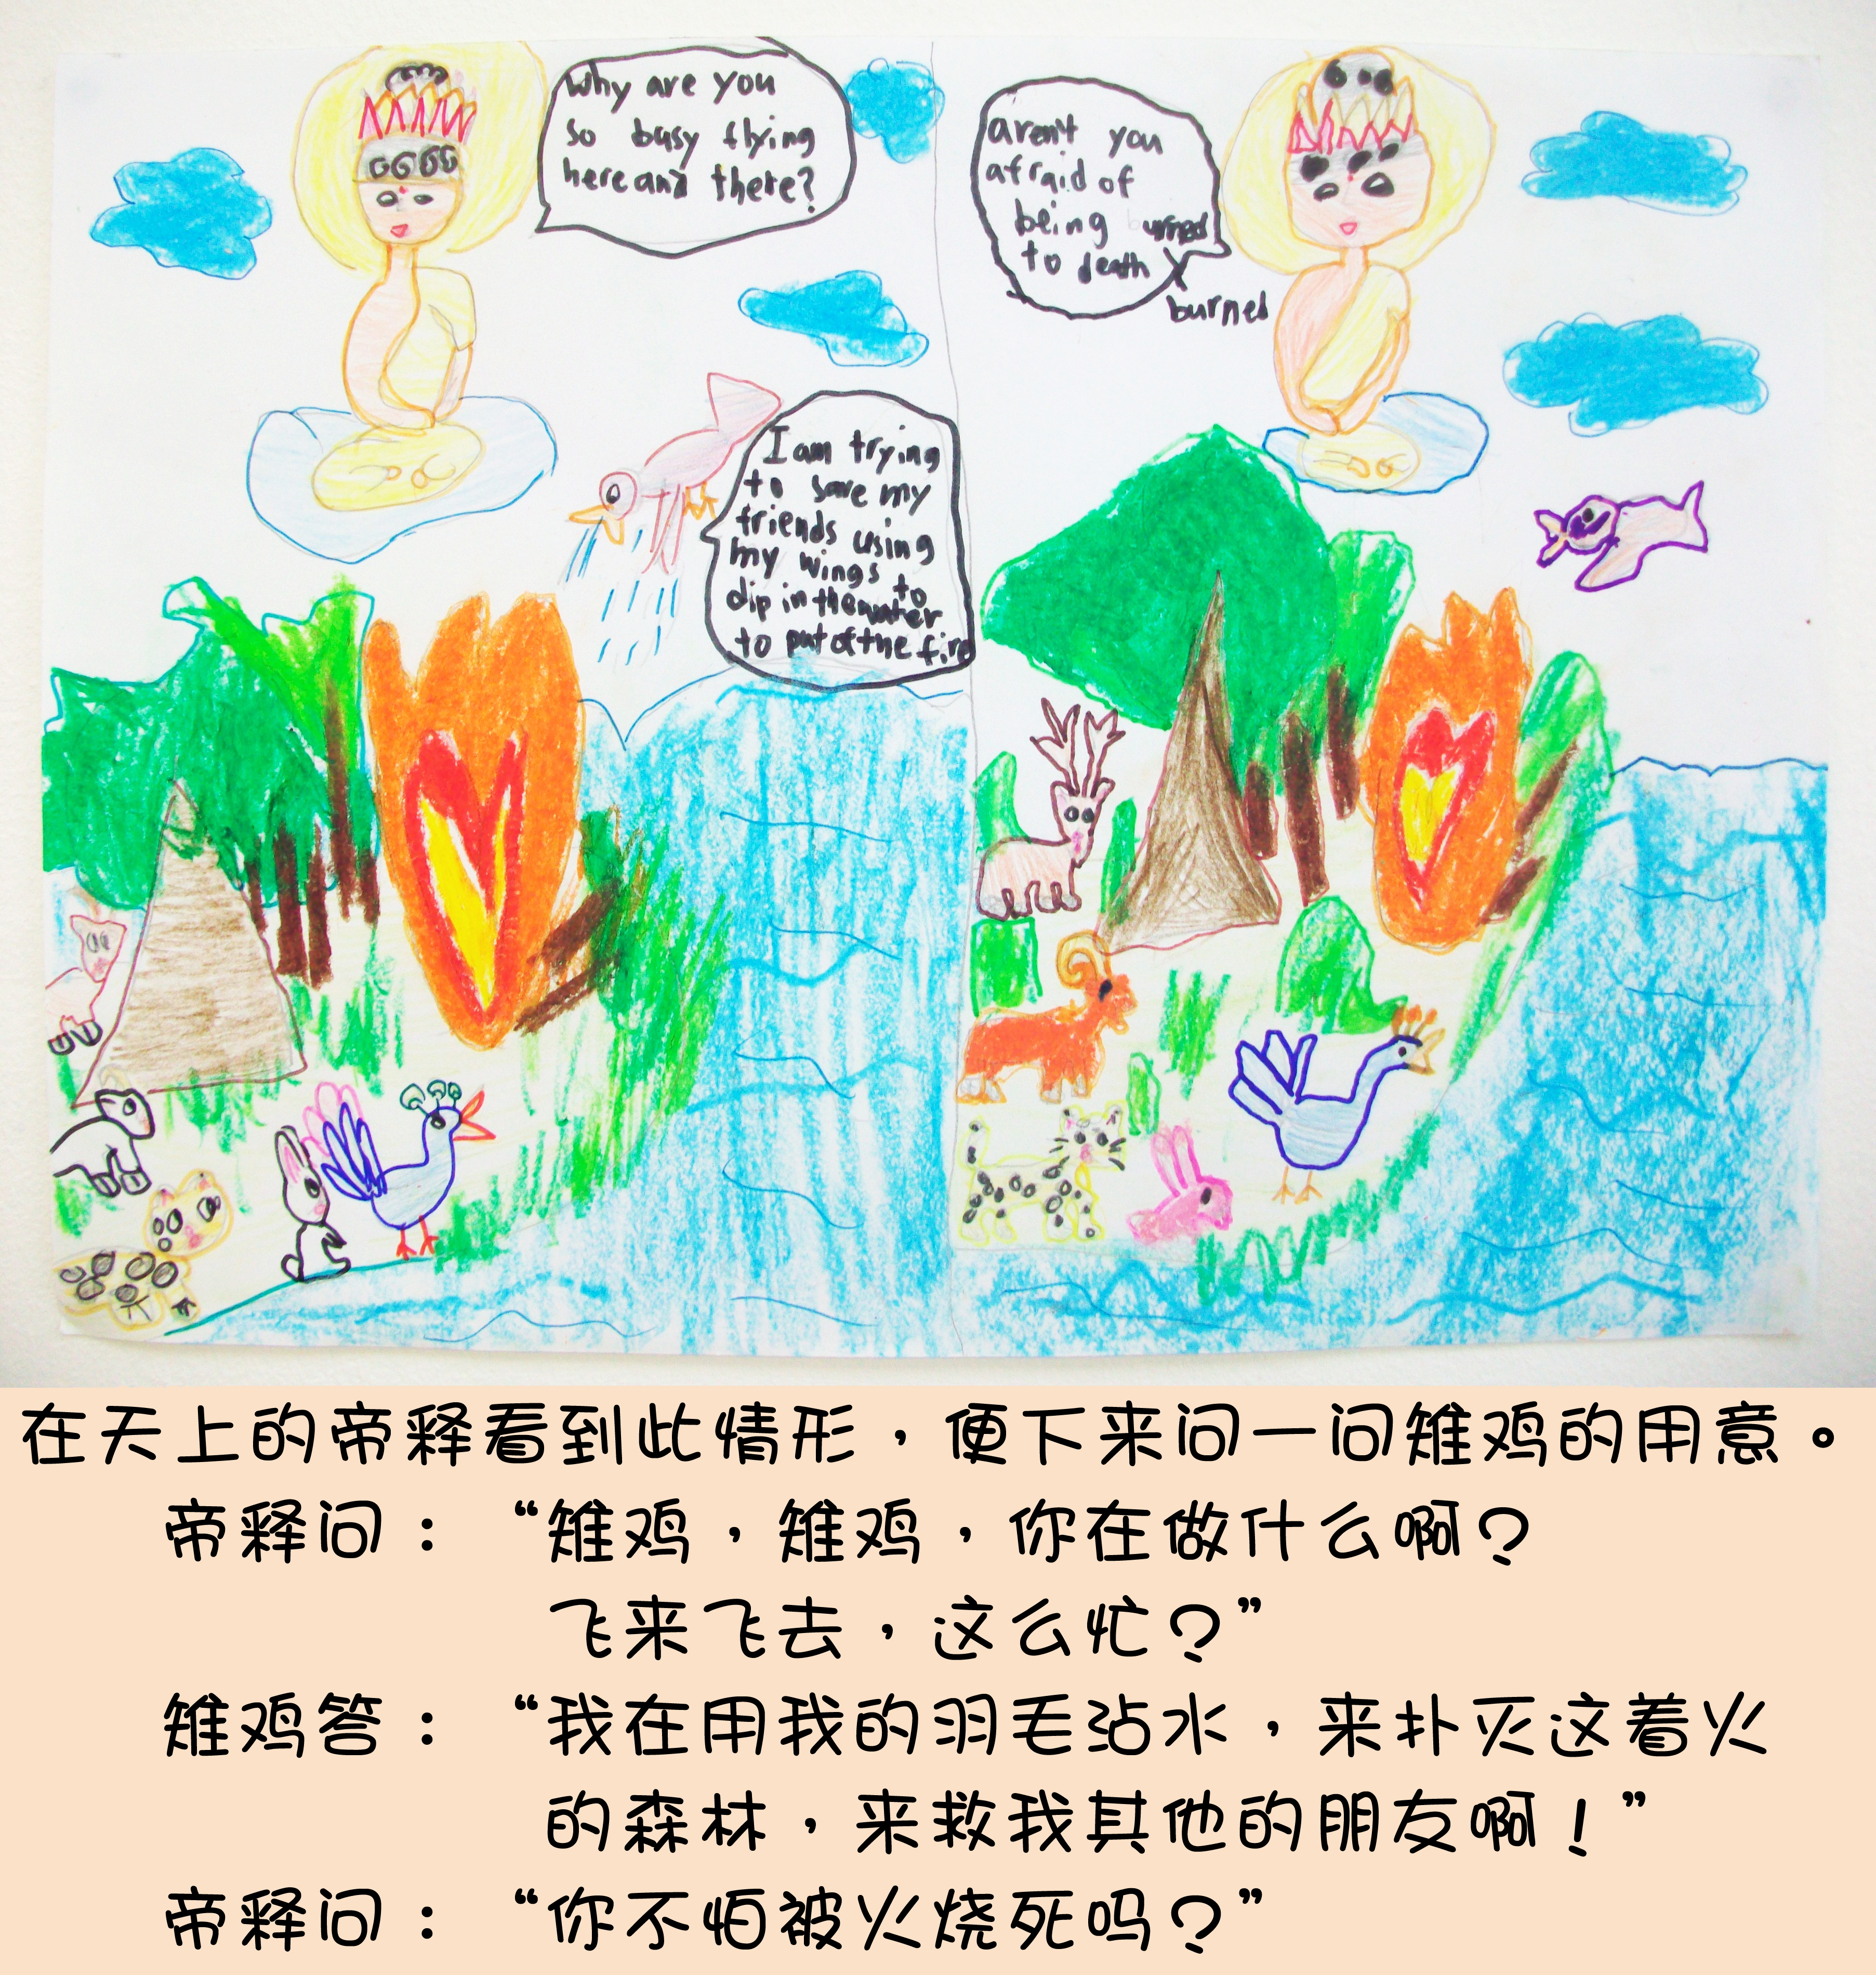 Why are you
so busy flying
here and there?
I am trying
to save my
friends using
my wings to
dip in the water
to put of the fire
aren't you
afraid of
being burned
to death
burned
在天上的帝释看到此情形，便下来问一问雉鸡的用意。
帝释问：“雉鸡，雉鸡，你在做什么啊？
飞来飞去，这么忙？”
雉鸡答：“我在用我的羽毛沾水，来扑灭这着火
的森林，来救我其他的朋友啊！”
帝释问：“你不怕被火烧死吗？”